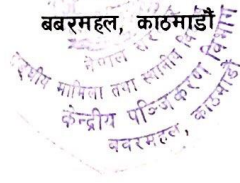 बबरमहल, काठमाडौं
नेपाल
मामिला तथा स्थानीय
केन्द्रीय पञ्जिकरण विभाग
बबरमहल, काठमाडौं